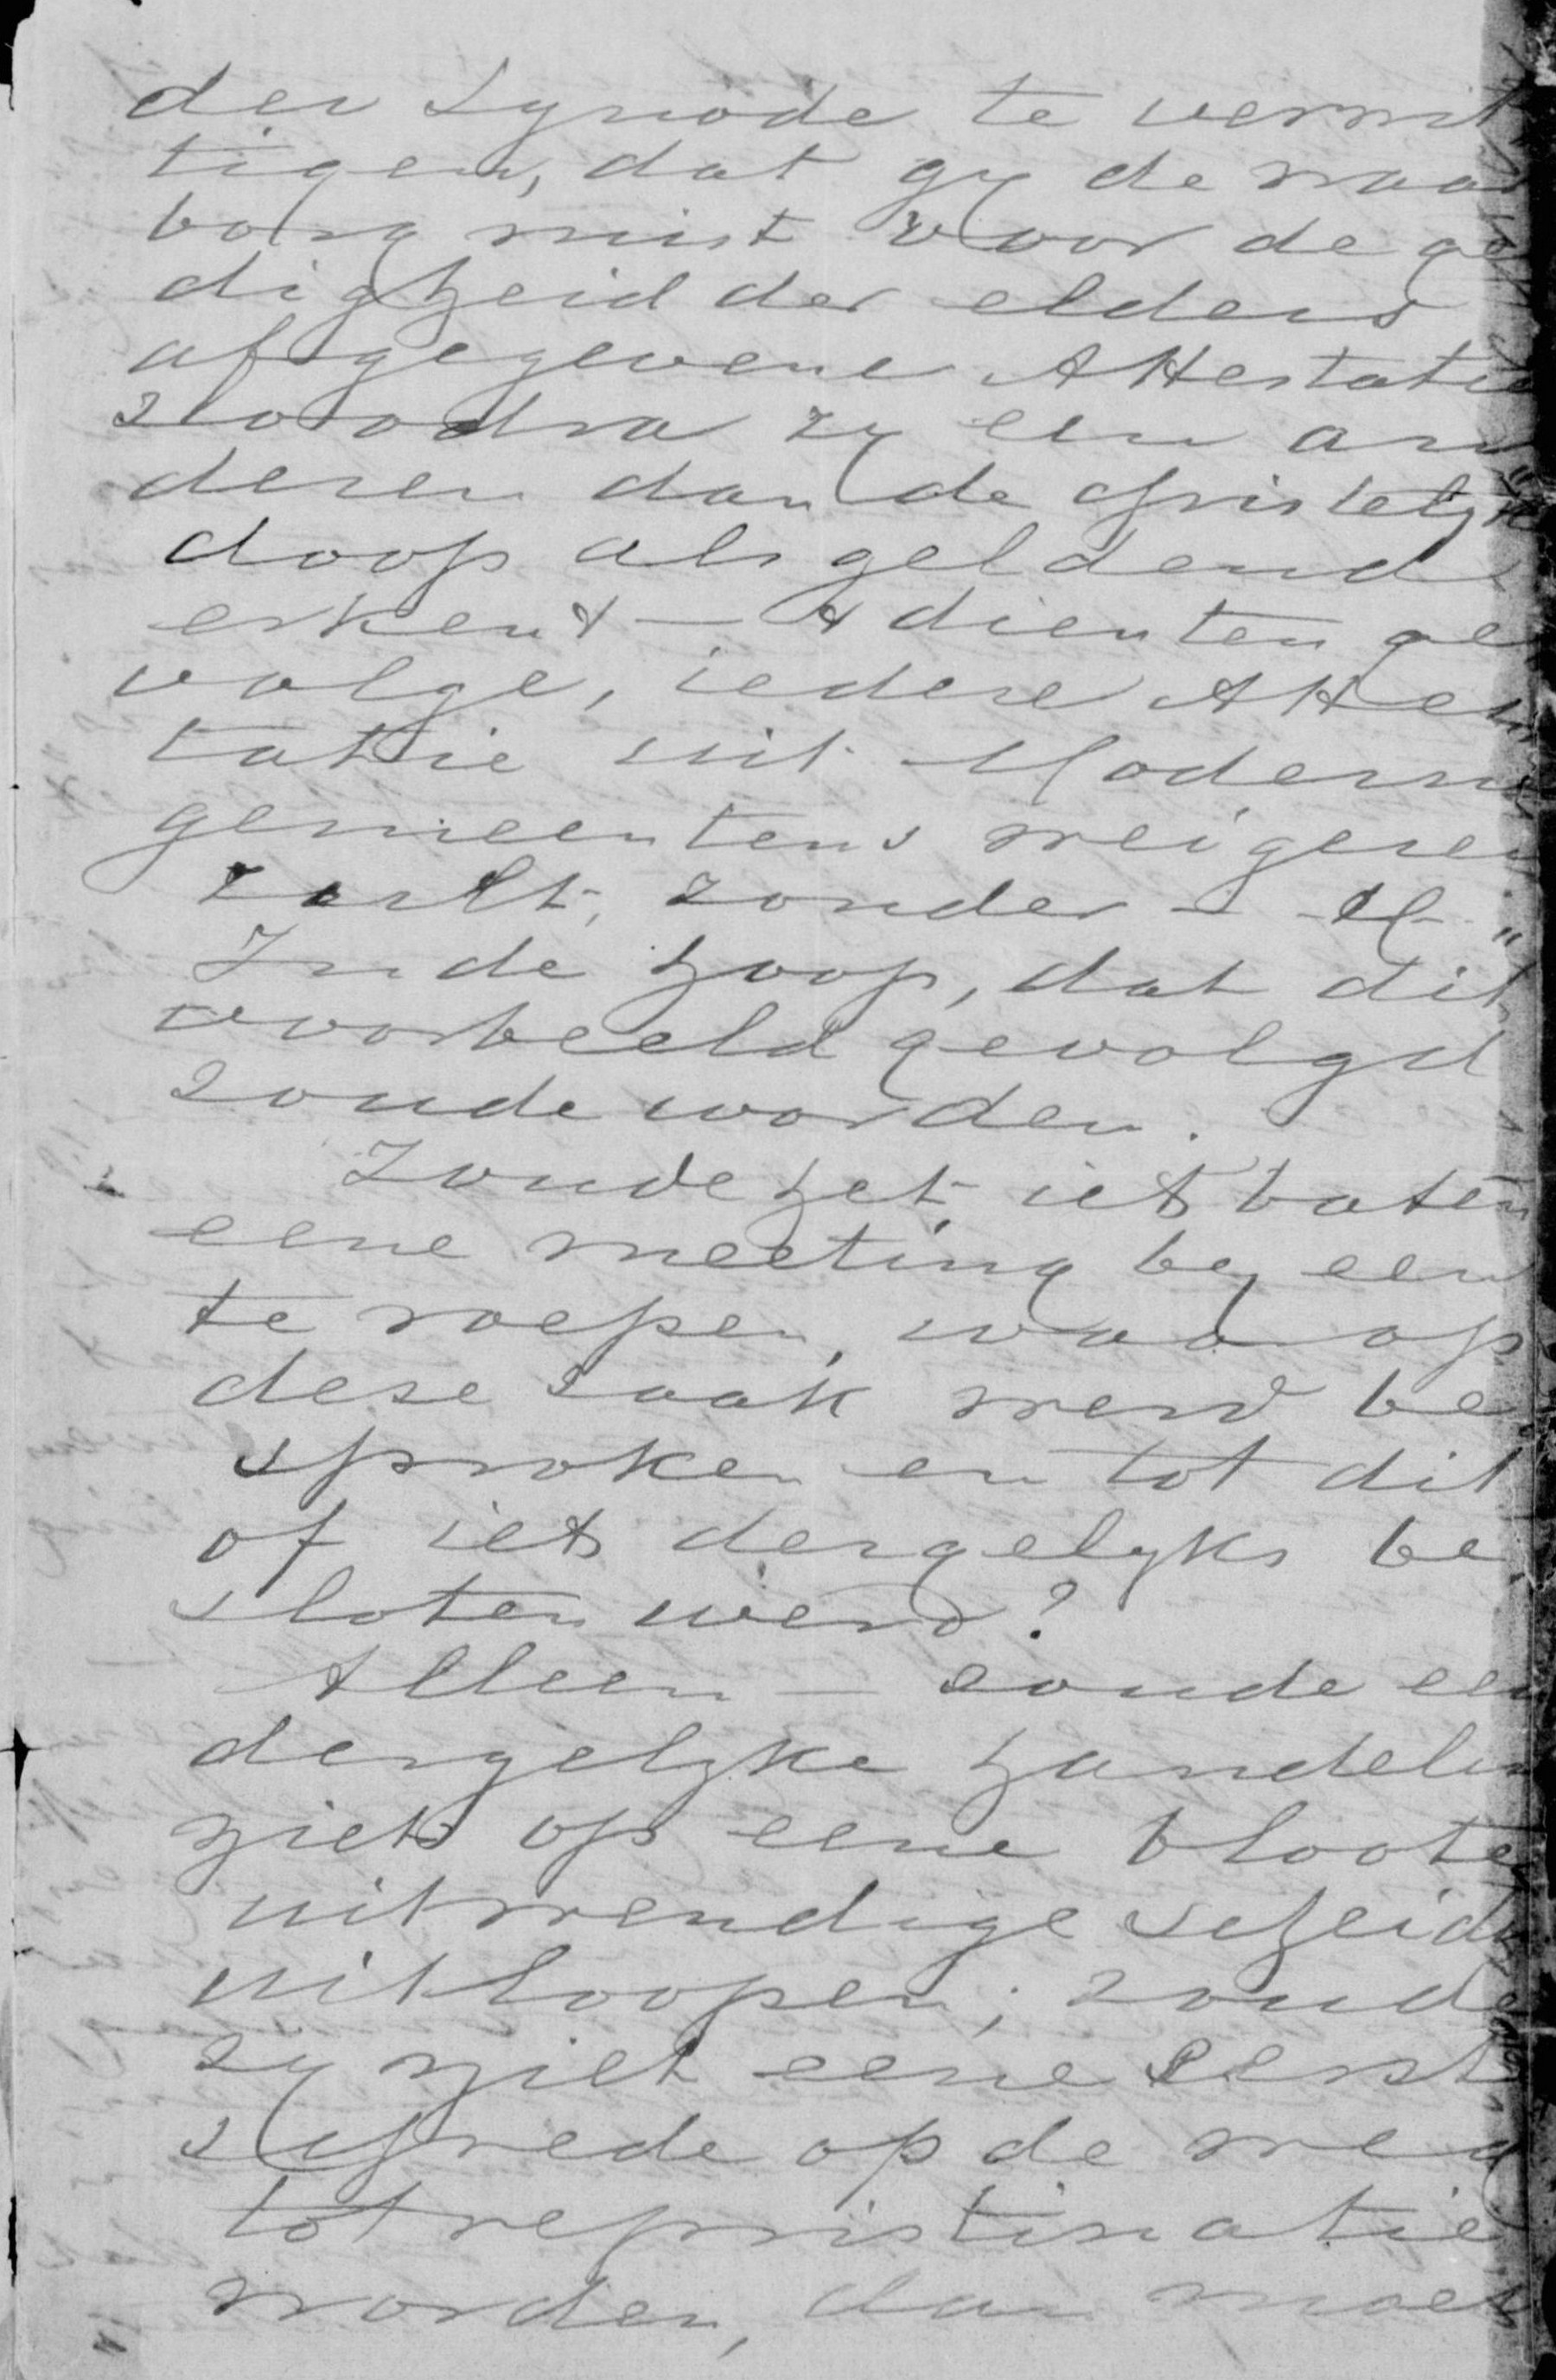 der Synode te verwit
tigen, dat gy de waar
borg mist voor de gel
digheid der elders
afgegevene Attestatie
zoodra zy een an
deren dan de christelyke
doop als geldend
erkent — & dienten ge
volge, iedere Attes
tatie uit Moderne
gemeentens weigeren
zult, zonder
In de hoop, dat dit
voorbeeld gevolgd
zoude worden.
Zoude het iets baten
eene meeting by een
te roepen, waar op
deze zaak werd be
sproken en tot dit
of iets dergelyks be
sloten werd?
Alleen — zoude een
dergelyke handelin
niet op eene bloote
uitwendige scheidi
uitloopen; zoude
zy niet eene eerste
schrede op de weg
tot repristinatie
worden, dan moet